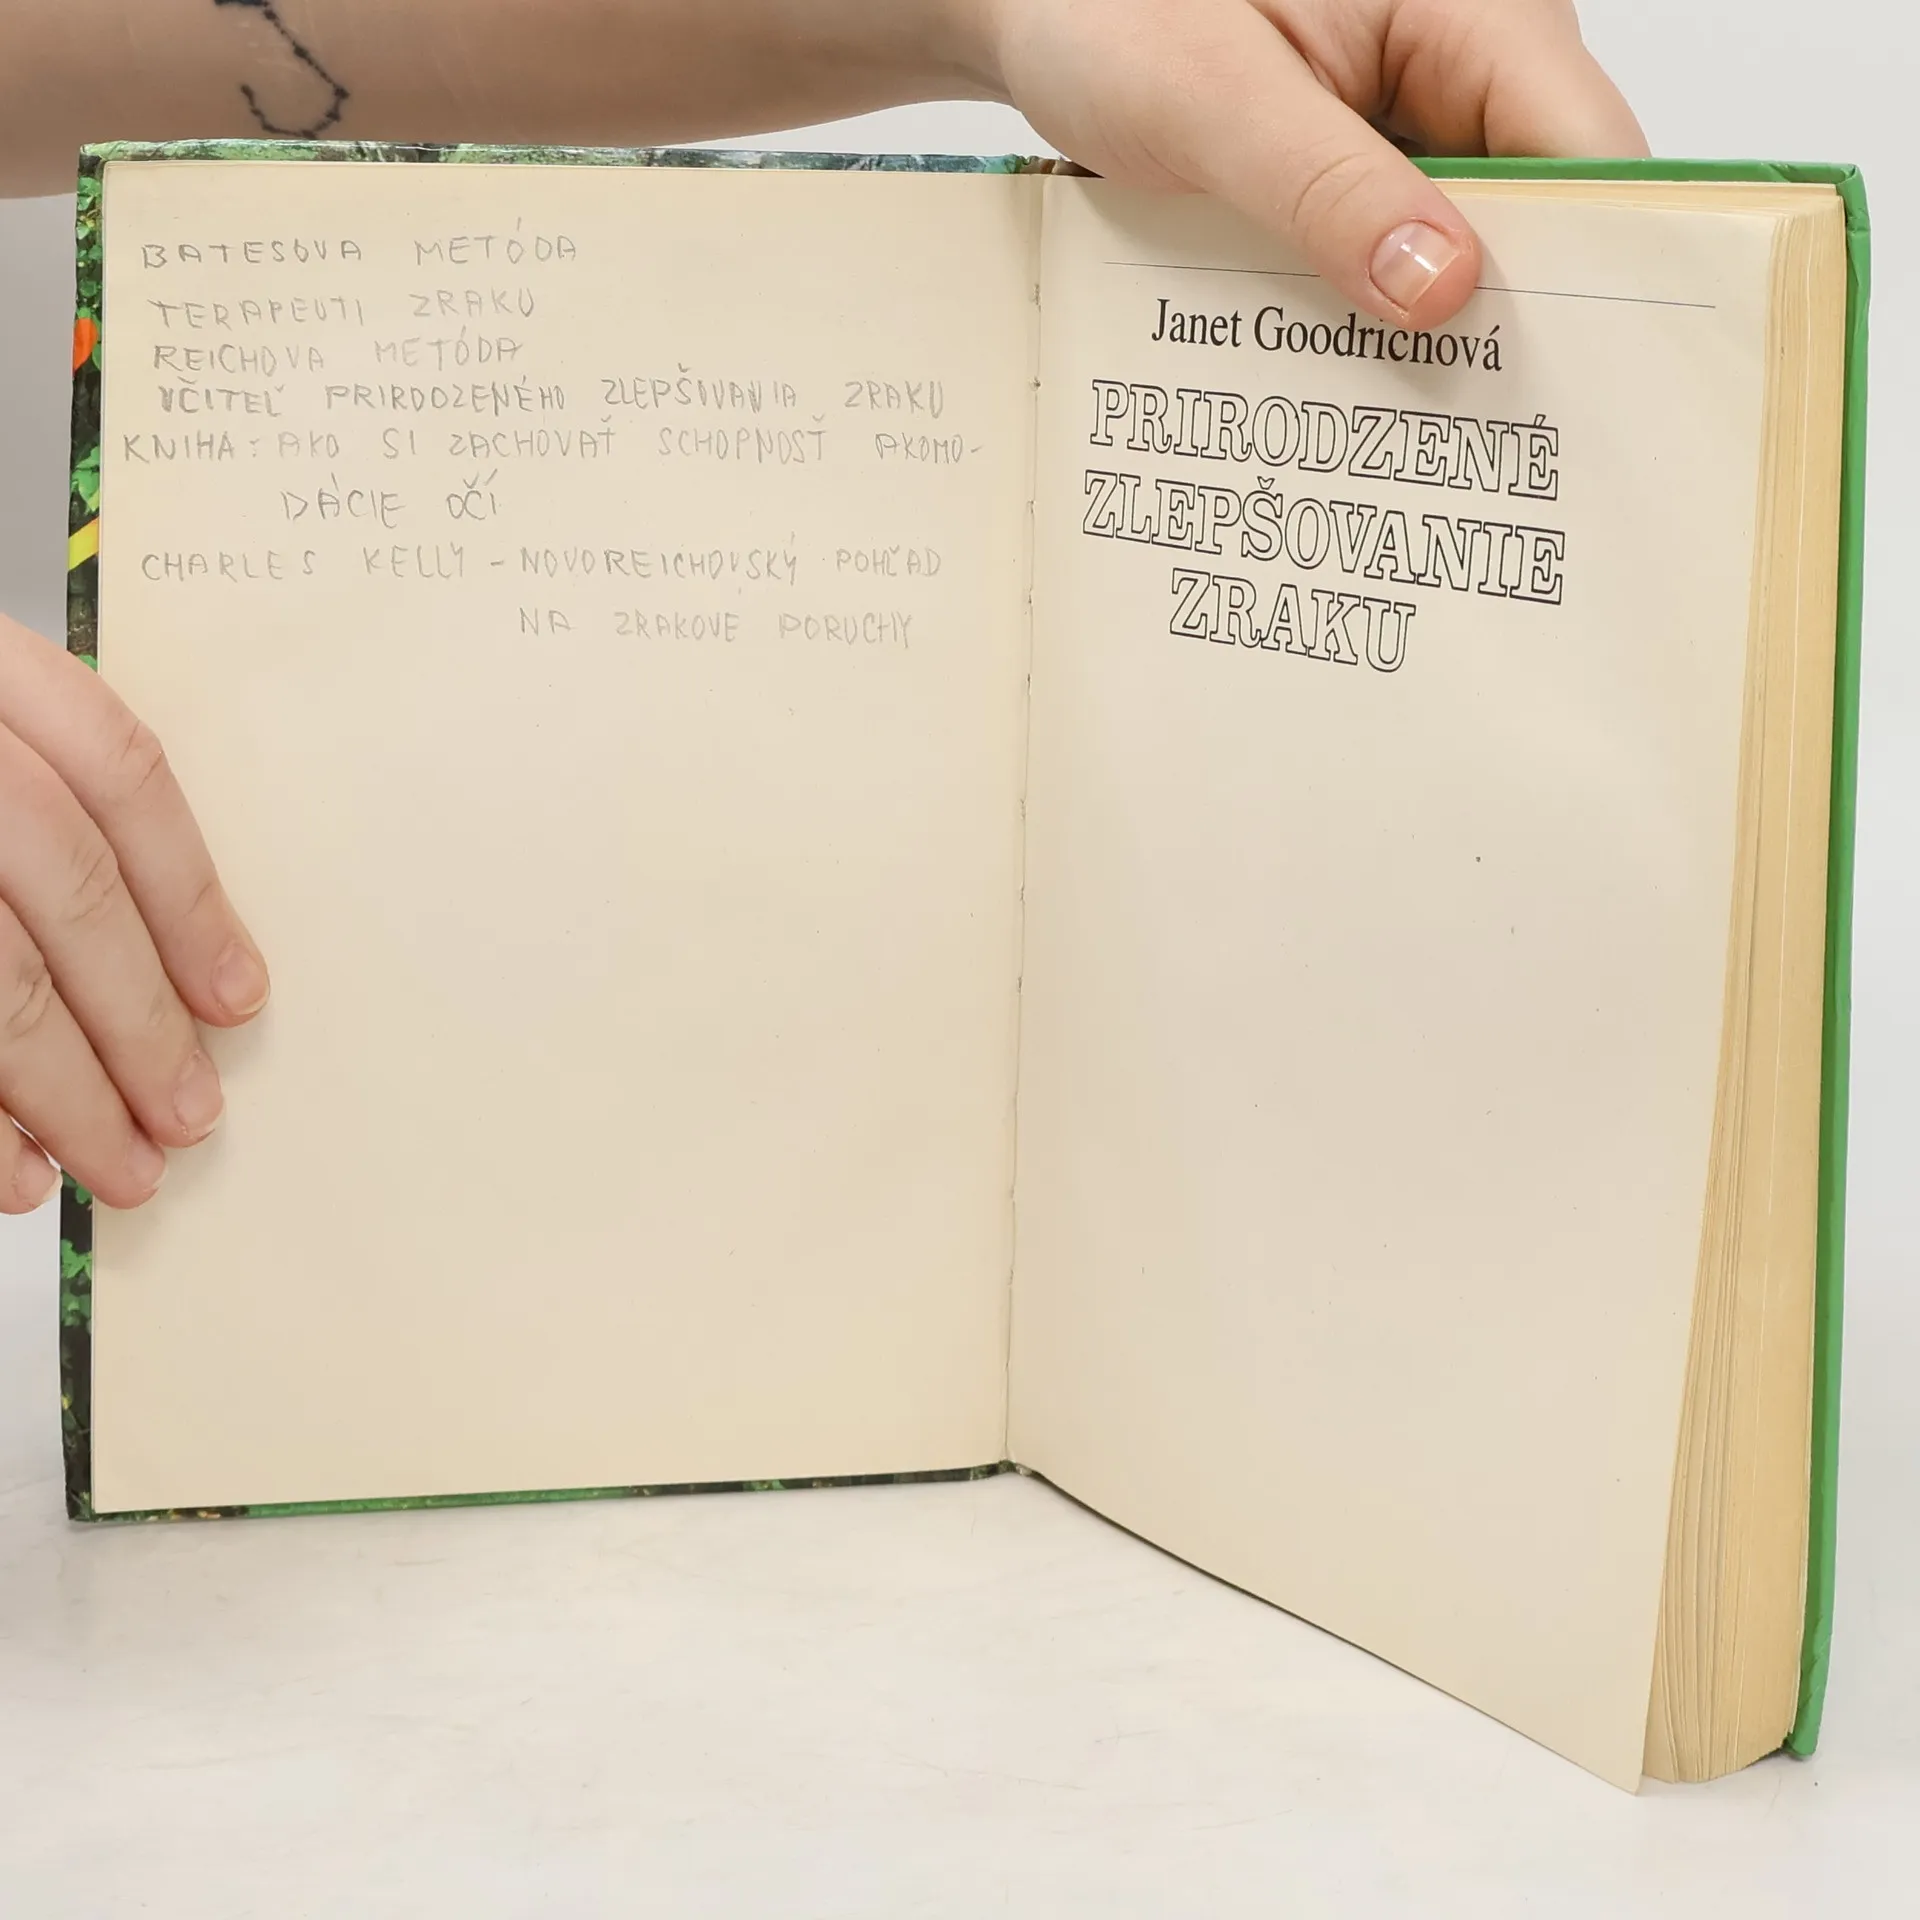 BATESOVA METÓDA
TERAPEUTI ZRAKU
REICHOVA METÓDA
UČITEĽ PRIRODZENÉHO ZLEPŠOVANIA ZRAKU
KNIHA: AKO SI ZACHOVAŤ SCHOPNOSŤ AKOMO-
DÁCIE OČÍ
CHARLES KELLY - NOVOREICHOVSKÝ POHĽAD
NA ZRAKOVÉ PORUCHY
Janet Goodrichová
PRIRODZENÉ
ZLEPŠOVANIE
ZRAKU